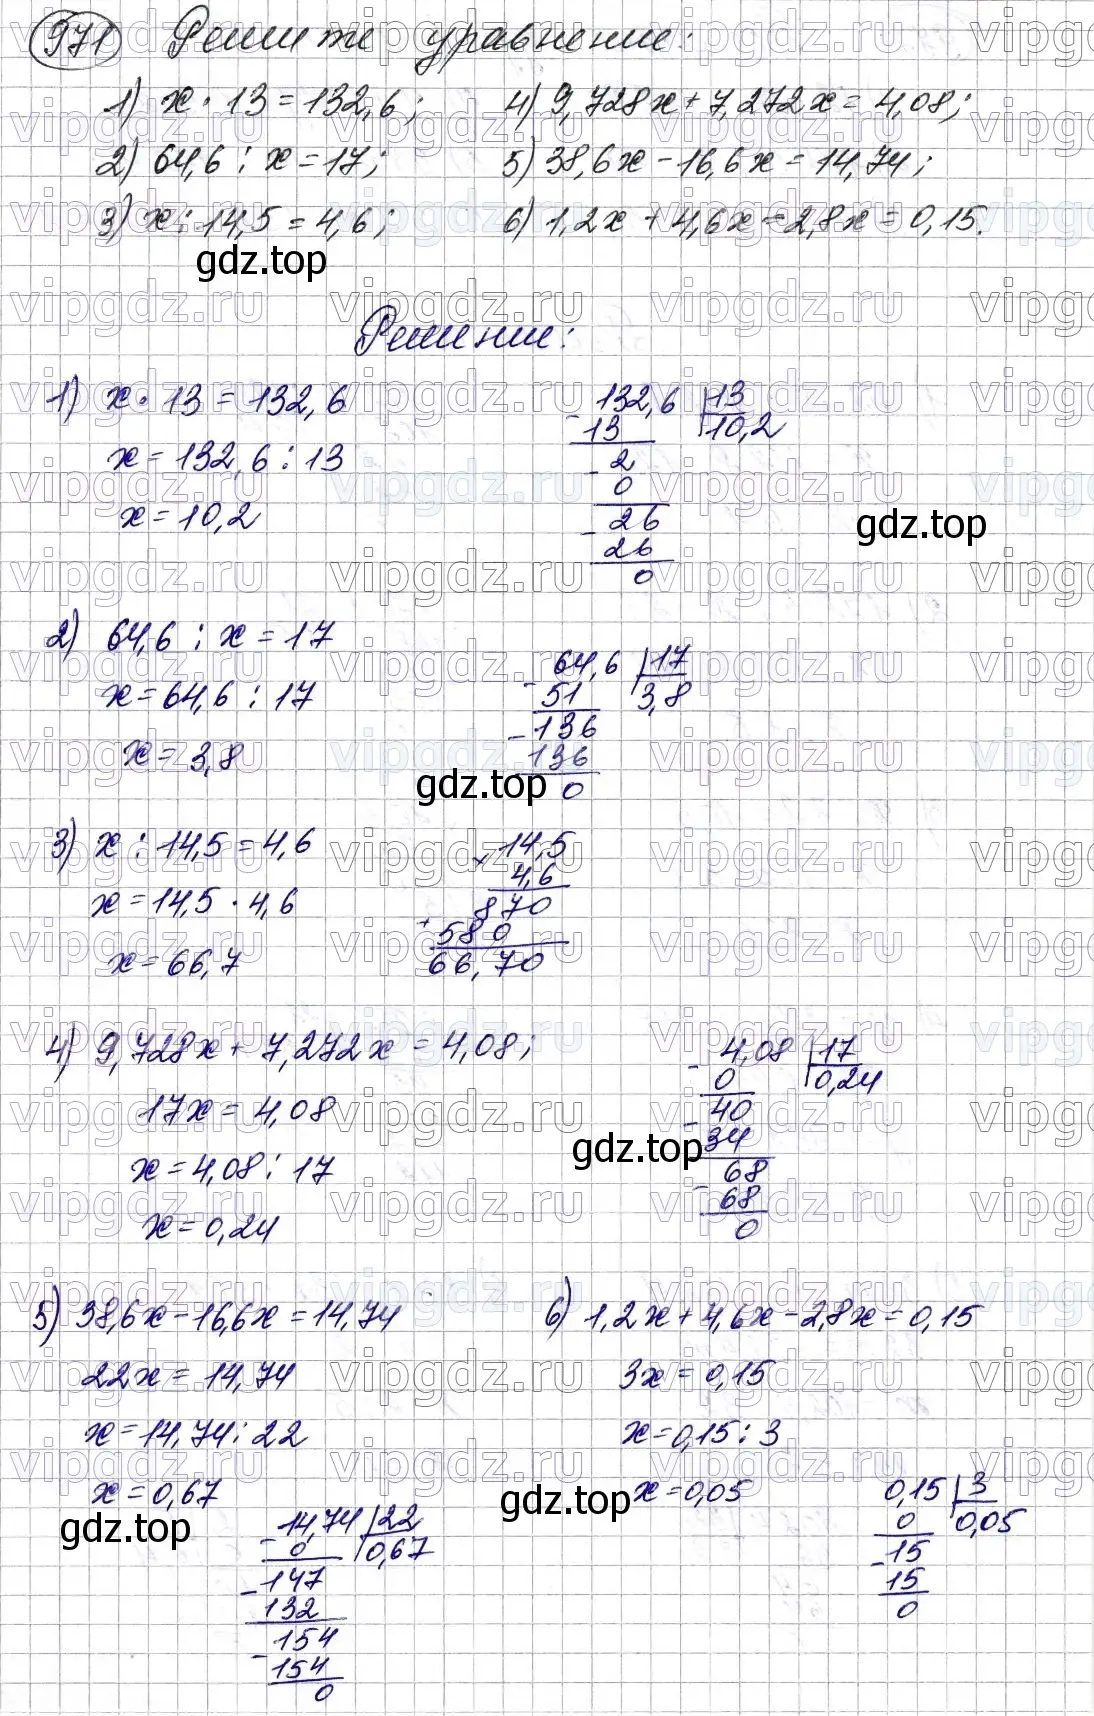 971 Решите уравнение:
1) x · 13 = 132,6; 4) 9,728x + 7,272x = 4,08;
2) 64,6 : x = 17; 5) 38,6x - 16,6x = 14,74;
3) x : 14,5 = 4,6; 6) 1,2x + 4,6x - 2,8x = 0,15.
gdz.top
Решение:
1) x · 13 = 132,6
x = 132,6 : 13
x = 10,2
132,6 | 13
- 13 10,2
- 2
0
- 26
26
0
gdz.top
2) 64,6 : x = 17
x = 64,6 : 17
x = 3,8
64,6 | 17
- 51 3,8
- 136
136
0
gdz.top
3) x : 14,5 = 4,6
x = 14,5 · 4,6
x = 66,7
14,5
× 4,6
870
+ 580
66,70
4) 9,728x + 7,272x = 4,08;
17x = 4,08
x = 4,08 : 17
x = 0,24
4,08 | 17
- 0 0,24
40
- 34
68
- 68
0
gdz.top
5) 38,6x - 16,6x = 14,74
22x = 14,74
x = 14,74 : 22
x = 0,67
gdz.top
14,74 | 22
- 0 0,67
- 147
132
- 154
154
0
6) 1,2x + 4,6x - 2,8x = 0,15
3x = 0,15
x = 0,15 : 3
x = 0,05
gdz.top
0,15 | 3
0 0,05
- 15
15
0
vipgdz.ru